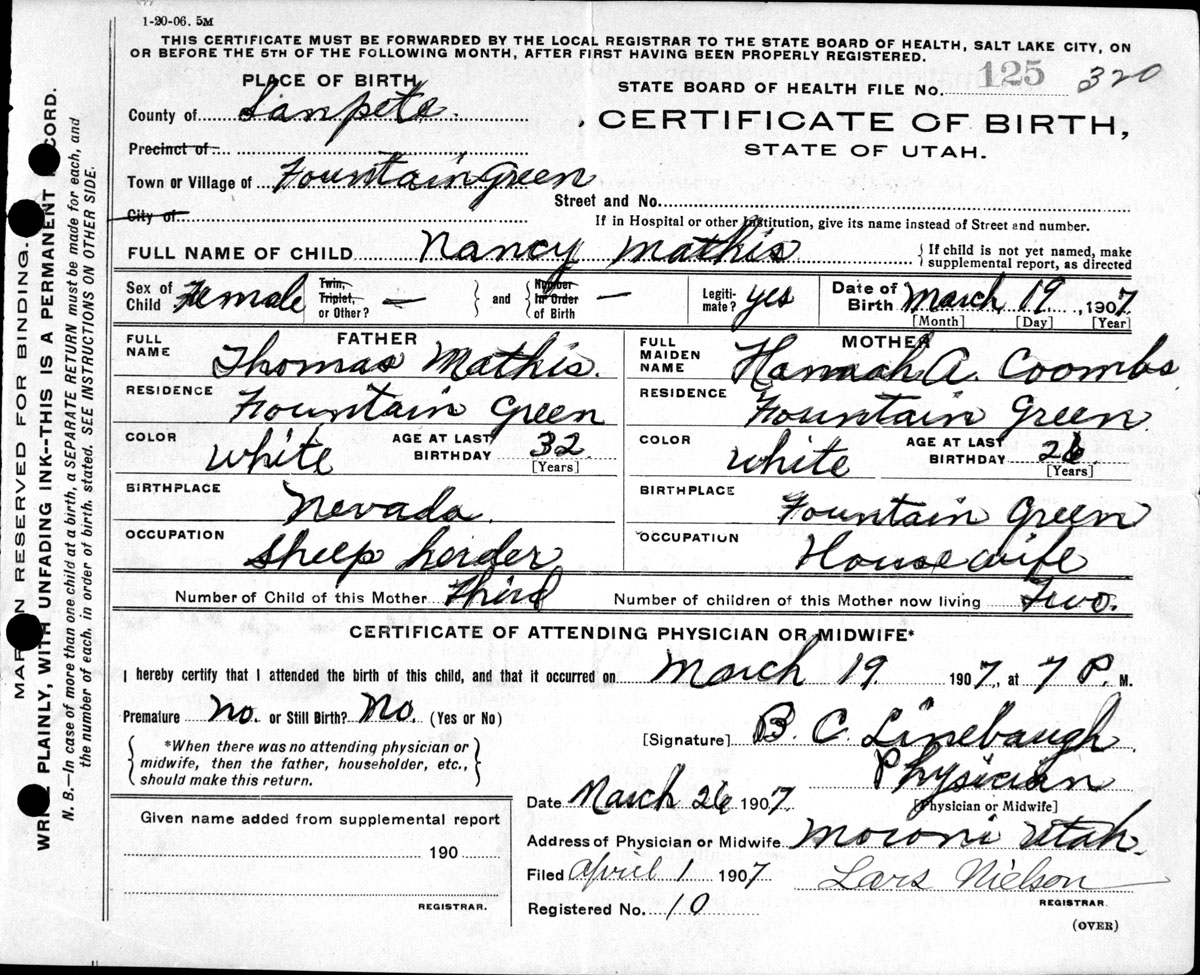 1-20-06. 5M
THIS CERTIFICATE MUST BE FORWARDED BY THE LOCAL REGISTRAR TO THE STATE BOARD OF HEALTH, SALT LAKE CITY, ON
OR BEFORE THE 5TH OF THE FOLLOWING MONTH, AFTER FIRST HAVING BEEN PROPERLY REGISTERED.
PLACE OF BIRTH
STATE BOARD OF HEALTH FILE No. 125 320
County of Sanpete.
CERTIFICATE OF BIRTH,
STATE OF UTAH.
Precinct of
Town or Village of Fountain Green
Street and No.
City of
If in Hospital or other Institution, give its name instead of Street and number.
FULL NAME OF CHILD Nancy Mathis
{If child is not yet named, make
supplemental report, as directed
Sex of Child Female
Twin, Triplet, or Other? — } and { Number in Order of Birth —
Legiti-mate? yes
Date of Birth March 19, 1907
[Month] [Day] [Year]
FATHER
FULL NAME Thomas Mathis.
RESIDENCE Fountain Green
COLOR white AGE AT LAST BIRTHDAY 32 [Years]
BIRTHPLACE Nevada.
OCCUPATION Sheep herder
MOTHER
FULL MAIDEN NAME Hannah A. Coombs
RESIDENCE Fountain Green
COLOR white AGE AT LAST BIRTHDAY 26 [Years]
BIRTHPLACE Fountain Green
OCCUPATION Housewife
Number of Child of this Mother Third Number of children of this Mother now living Two.
CERTIFICATE OF ATTENDING PHYSICIAN OR MIDWIFE*
I hereby certify that I attended the birth of this child, and that it occurred on March 19 1907, at 7 P. M.
Premature No. or Still Birth? No. (Yes or No)
{*When there was no attending physician or
midwife, then the father, householder, etc.,
should make this return.}
[Signature] B. C. Linebaugh
Physician
[Physician or Midwife]
Date March 26 1907
Address of Physician or Midwife Moroni Utah.
Filed April 1 1907 Lars Nielson
REGISTRAR.
Registered No. 10
(OVER)
Given name added from supplemental report
190
REGISTRAR.
MARGIN RESERVED FOR BINDING.
WRITE PLAINLY, WITH UNFADING INK--THIS IS A PERMANENT RECORD.
N. B.—In case of more than one child at a birth, a SEPARATE RETURN must be made for each, and
the number of each, in order of birth, stated. SEE INSTRUCTIONS ON OTHER SIDE.